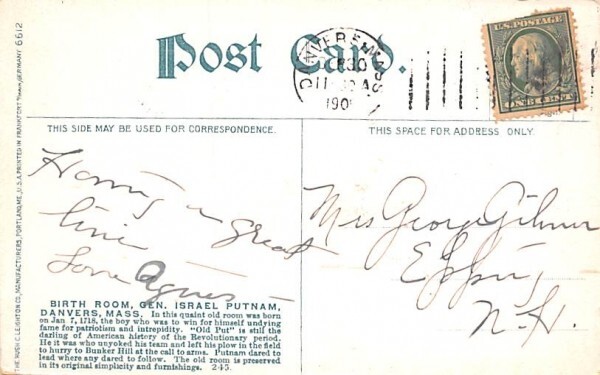 Post Card.
DANVERS MASS
11 30 A
190
U.S. POSTAGE
ONE CENT
THIS SIDE MAY BE USED FOR CORRESPONDENCE.
THIS SPACE FOR ADDRESS ONLY.
Having a great
time
Love Agnes
Mrs George Gilmor
N.H.
BIRTH ROOM, GEN. ISRAEL PUTNAM,
DANVERS, MASS. In this quaint old room was born
on Jan 7, 1718, the boy who was to win for himself undying
fame for patriotism and intrepidity. "Old Put" is still the
darling of American history of the Revolutionary period.
He it was who unyoked his team and left his plow in the field
to hurry to Bunker Hill at the call to arms. Putnam dared to
lead where any dared to follow. The old room is preserved
in its original simplicity and furnishings. 245.
THE HUGH C. LEIGHTON CO., MANUFACTURERS, PORTLAND, ME., U.S.A. PRINTED IN FRANKFORT GERMANY 6612